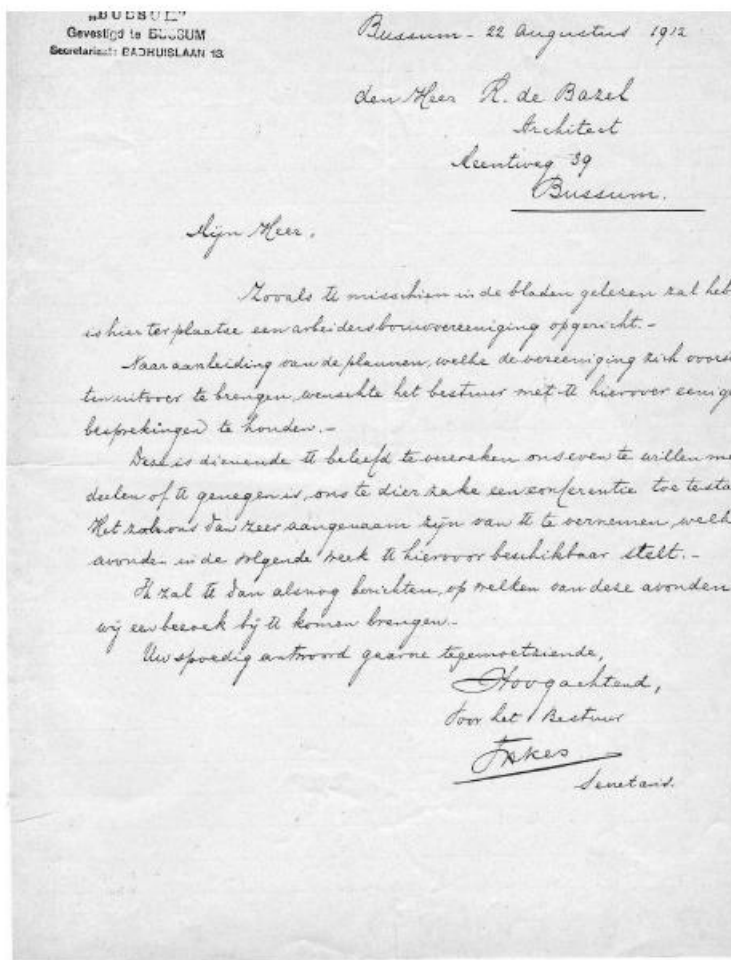 „BUSSUM”
Gevestigd te BUSSUM
Secretariaat: BADHUISLAAN 13.
Bussum - 22 Augustus 1912
den Heer K. de Bazel
Architect
Meentweg 39
Bussum.
Mijn Heer,
Zooals U misschien in de bladen gelezen zal heb
is hier ter plaatse een arbeidersbouwvereeniging opgericht.-
Naar aanleiding van de plannen, welke de vereeniging zich voors
ten uitvoer te brengen, wenschte het bestuur met U hierover eenige
besprekingen te houden.-
Deze is dienende U beleefd te verzoeken ons even te willen me
deelen of U genegen is, ons te dier zake een conferentie toe testa
Het zal ons dan zeer aangenaam zijn van U te vernemen, welk
avonden in de volgende week U hiervoor beschikbaar stelt.-
Ik zal U dan alsnog berichten, op welken van deze avonden
wij een bezoek bij U komen brengen.-
Uw spoedig antwoord gaarne tegemoetziende,
Hoogachtend,
Voor het Bestuur
Secretaris.